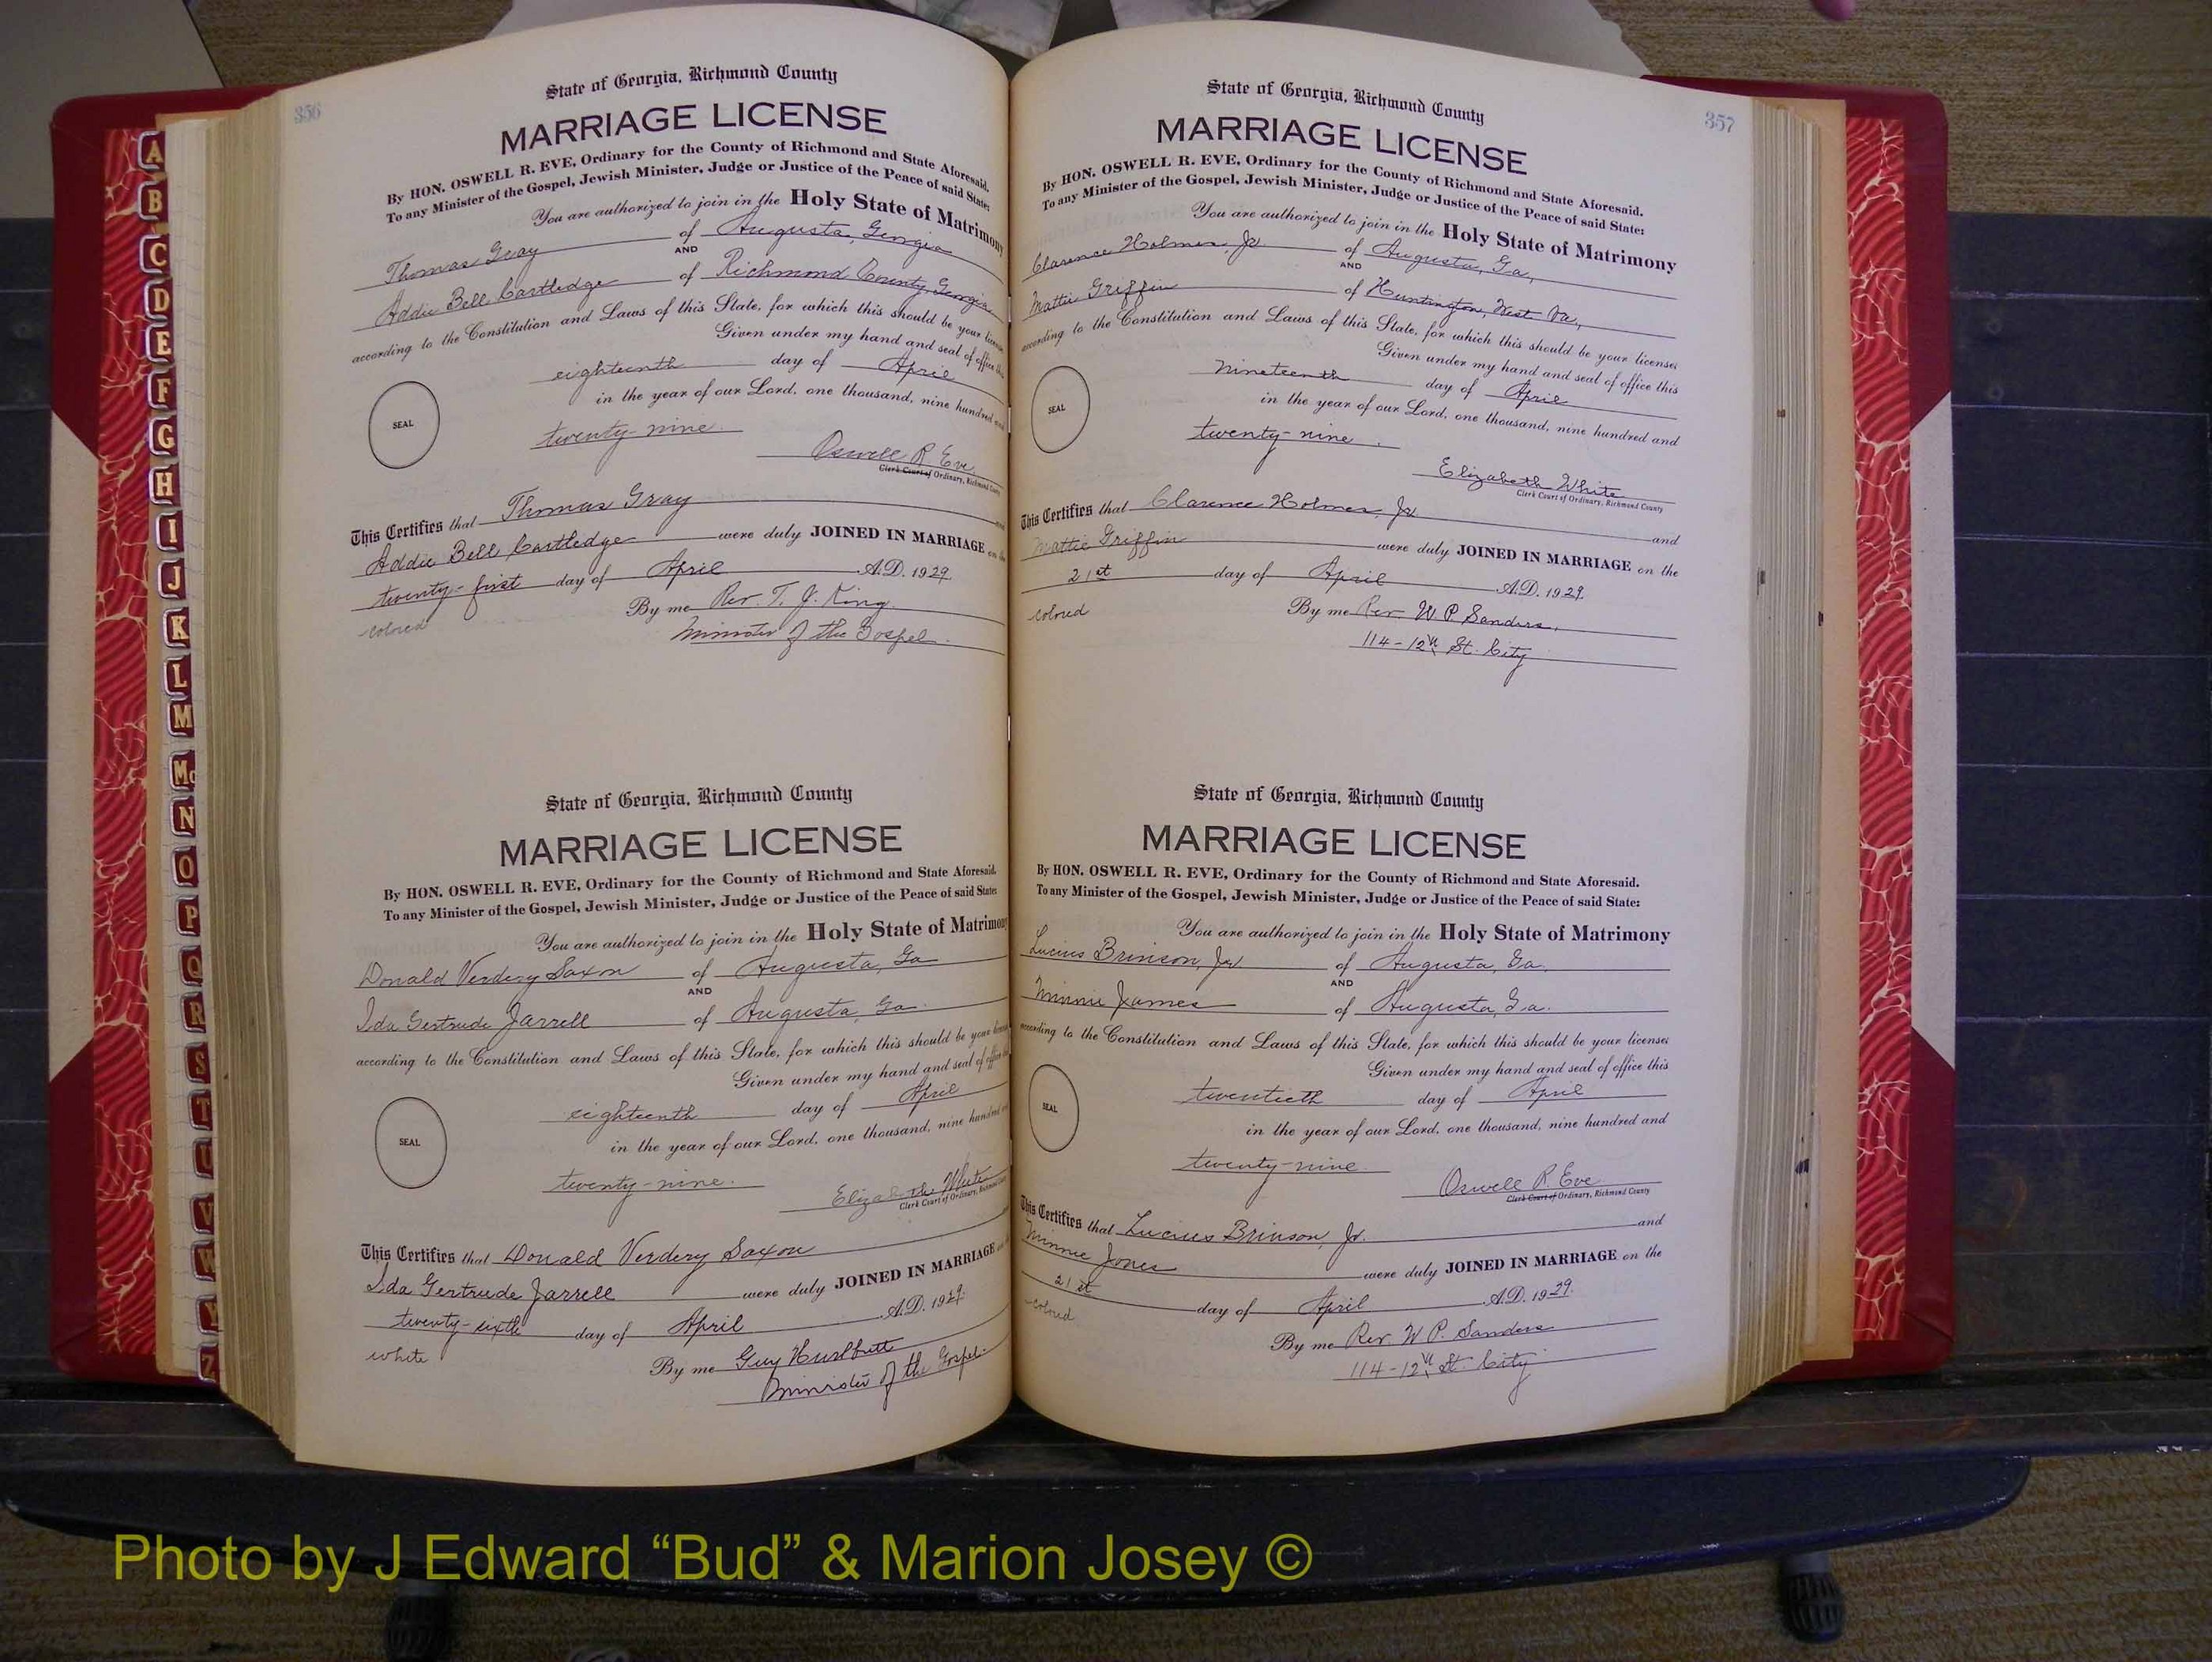 356
State of Georgia, Richmond County
MARRIAGE LICENSE
By HON. OSWELL R. EVE, Ordinary for the County of Richmond and State Aforesaid.
To any Minister of the Gospel, Jewish Minister, Judge or Justice of the Peace of said State:
You are authorized to join in the Holy State of Matrimony
Thomas Gray of Augusta, Georgia
AND
Addie Bell Cartledge of Richmond County, Georgia
according to the Constitution and Laws of this State, for which this should be your license
Given under my hand and seal of office this
eighteenth day of April
in the year of our Lord, one thousand, nine hundred and
SEAL
twenty-nine.
Oswell R. Eve
Clerk Court of Ordinary, Richmond County
This Certifies that Thomas Gray and
Addie Bell Cartledge were duly JOINED IN MARRIAGE on the
twenty-first day of April A.D. 1929.
colored
By me Rev. T. J. King.
Minister of the Gospel.
State of Georgia, Richmond County
MARRIAGE LICENSE
By HON. OSWELL R. EVE, Ordinary for the County of Richmond and State Aforesaid.
To any Minister of the Gospel, Jewish Minister, Judge or Justice of the Peace of said State:
You are authorized to join in the Holy State of Matrimony
Donald Verdery Saxon of Augusta, Ga
AND
Ida Gertrude Jarrell of Augusta, Ga.
according to the Constitution and Laws of this State, for which this should be your license
Given under my hand and seal of office this
eighteenth day of April
SEAL
in the year of our Lord, one thousand, nine hundred and
twenty-nine.
Elizabeth White
Clerk Court of Ordinary, Richmond County
This Certifies that Donald Verdery Saxon
Ida Gertrude Jarrell were duly JOINED IN MARRIAGE on the
twenty-sixth day of April A.D. 1929.
white
By me Guy Hurlbutt
Minister of the Gospel.
357
State of Georgia, Richmond County
MARRIAGE LICENSE
By HON. OSWELL R. EVE, Ordinary for the County of Richmond and State Aforesaid.
To any Minister of the Gospel, Jewish Minister, Judge or Justice of the Peace of said State:
You are authorized to join in the Holy State of Matrimony
Clarence Holmes, Jr. of Augusta, Ga,
AND
Mattie Griffin of Huntington, West Va,
according to the Constitution and Laws of this State, for which this should be your license:
Given under my hand and seal of office this
nineteenth day of April
SEAL
in the year of our Lord, one thousand, nine hundred and
twenty-nine.
Elizabeth White
Clerk Court of Ordinary, Richmond County
This Certifies that Clarence Holmes, Jr. and
Mattie Griffin were duly JOINED IN MARRIAGE on the
21st day of April A.D. 1929.
colored
By me Rev. W P Sanders,
114-12th St. City
State of Georgia, Richmond County
MARRIAGE LICENSE
By HON. OSWELL R. EVE, Ordinary for the County of Richmond and State Aforesaid.
To any Minister of the Gospel, Jewish Minister, Judge or Justice of the Peace of said State:
You are authorized to join in the Holy State of Matrimony
Lucius Brinson, Jr. of Augusta, Ga.
AND
Minnie James of Augusta, Ga.
according to the Constitution and Laws of this State, for which this should be your license:
Given under my hand and seal of office this
twentieth day of April
SEAL
in the year of our Lord, one thousand, nine hundred and
twenty-nine.
Oswell R. Eve
Clerk Court of Ordinary, Richmond County
This Certifies that Lucius Brinson, Jr. and
Minnie Jones were duly JOINED IN MARRIAGE on the
21st day of April A.D. 1929.
colored
By me Rev. W. P. Sanders
114-12th St. City
A
B
C
D
E
F
G
H
I
J
K
L
M
Mc
N
O
P
Q
R
S
T
U
V
W
Y
Z
Photo by J Edward “Bud” & Marion Josey ©